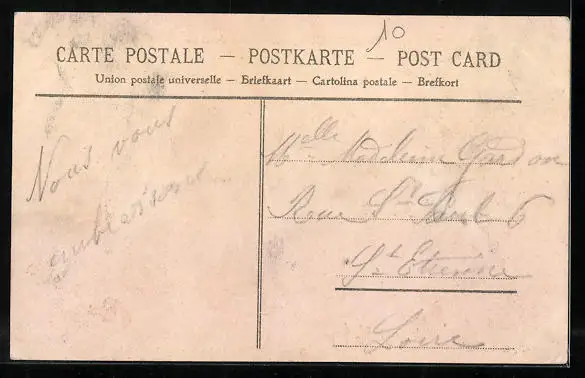 10
CARTE POSTALE — POSTKARTE — POST CARD
Union postale universelle — Briefkaart — Cartolina postale — Brefkort
Nous vous
embrassons
Melle Madeleine Gardon
Rue St Paul 6
St Etienne
Loire